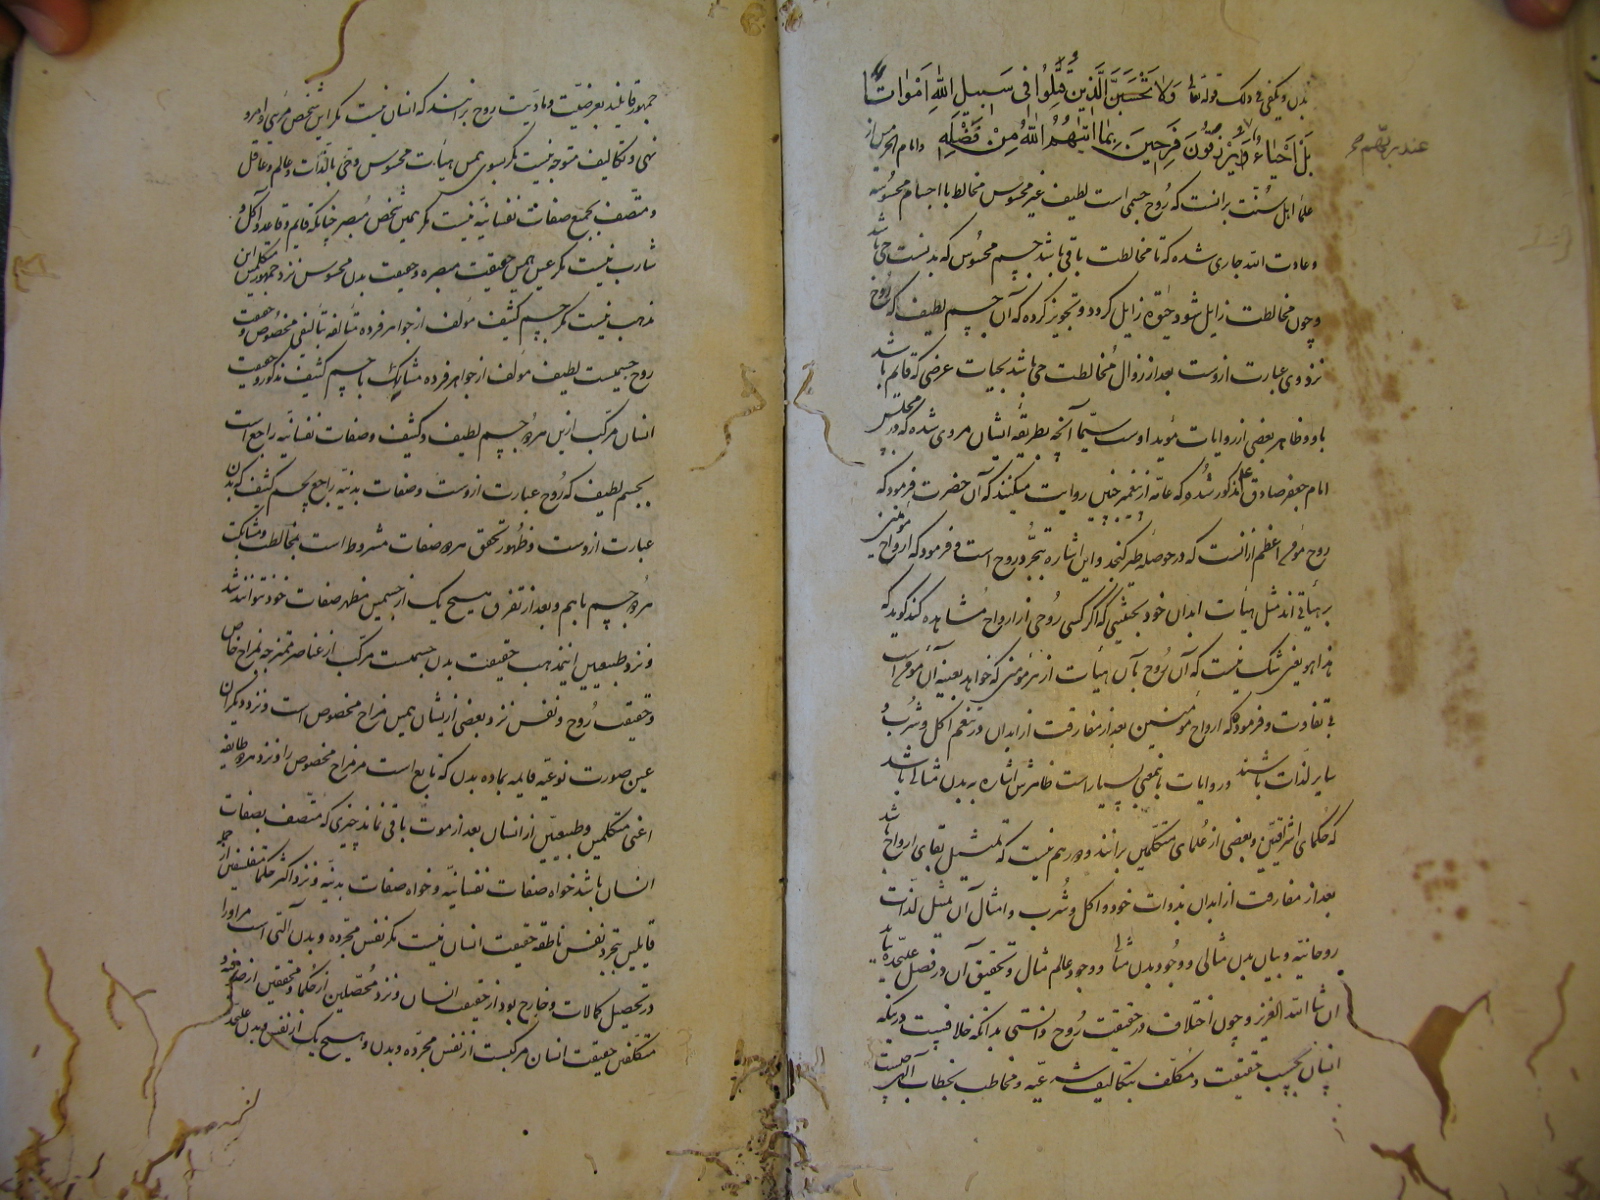 بدن و یکفی فی ذلک قوله تعالی وَلا تَحْسَبَنَّ الَّذِینَ قُتِلُوا فِی سَبِیلِ اللّهِ اَمْواتاً
بَلْ اَحْیاءٌ یُرْزَقُونَ فَرِحِینَ بِما اتیهُمُ اللّهُ مِنْ فَضْلِهِ و امام الحرمین از
عند ربهم صح
علمای اهل سنت برانست که روح جسمی است لطیف غیر محسوس مخالط با اجسام محسوسه
و عادت الله جاری شده که تا مخالطت باقی باشد جسم محسوس که بدنست حی باشد
و چون مخالطت زایل شود حیوة زایل گردد و تجویز کرده که آن جسم لطیف که روح
نزد وی عبارت ازوست بعد از زوال مخالطت حی باشد بحیات عرضی که قائم باشد
باو و ظاهر بعضی از روایات مؤید اوست سیما آنچه بطریقه ایشان مروی شده که در مجلس
امام جعفر صادق مذکور شد که عامه از پیغمبر چنین روایت میکنند که آن حضرت فرمود که
روح مؤمن اعظم ازانست که در حوصله طیر گنجد و این اشاره بتجرد روح است و فرمود که ارواح مؤمنین
بر هیأتی اند مثل هیأت ابدان خود بحیثیتی که اگر کسی روحی از ارواح مشاهده کند گوید که
هذا هو یعنی شک نیست که آن روح بآن هیأت از هر مؤمنی که خواهد بعینه آن مؤمن است
بی تفاوت و فرمود که ارواح مؤمنین بعد از مفارقت از ابدان در تنعم اکل و شرب و
سایر لذات باشند و روایات باینمعنی بسیار است ظاهرش اشاره به بدن مثالی باشد
که حکمای اشراقیین و بعضی از علمای متکلمین برانند و دور هم نیست که تمثیل بقای ارواح باشد
بعد از مفارقت از ابدان بذوات خود و اکل و شرب و امثال آن تمثیل لذات
روحانیه و بیان بدن مثالی و وجود بدن مثالی و وجود عالم مثال و تحقیق آن در فصل علیحده بیاید
ان شاء الله العزیز و چون اختلاف در حقیقت روح دانستی بدانکه خلافیست در اینکه
انسان بحسب حقیقت و مکلف بتکالیف شرعیه و مخاطب بخطاب الهی چیست
جمهور قایلند بعرضیت و مادیت روح برانند که انسان نیست مگر این شخص مرئی و امر و
نهی و تکالیف متوجه نیست مگر بسوی همین هیأت محسوس و حی بالذات و عالم و عاقل
و متصف بجمیع صفات نفسانیه نیست مگر همین شخص مبصر چنانکه قایم و قاعد و آکل و
شارب نیست مگر عین همین حقیقت مبصره و حقیقت بدن محسوس نزد جمهور متکلمین این
مذهب نیست مگر جسم کثیف مؤلف از جواهر فرده متألفه بتألیفی مخصوص و حقیقت
روح جسمیست لطیف مؤلف از جواهر فرده مشابک با جسم کثیف مذکور و حقیقت
انسان مرکب ازین هر دو جسم لطیف و کثیف و صفات نفسانیه راجع است
بجسم لطیف که روح عبارت ازوست و صفات بدنیه راجع بجسم کثیف که بدن
عبارت ازوست و ظهور و تحقق هر دو صفات مشروط است بمخالطت و مشابکت
هر دو جسم باهم و بعد از تفرق هیچ یک از جسمین مظهر صفات خود نتوانند شد
و نزد طبیعیین اینمذهب حقیقت بدن جسمیست مرکب از عناصر ممتزجه بمزاج خاص
و حقیقت روح و نفس نزد بعضی ازیشان همین مزاج مخصوص است و نزد دیگران
عین صورت نوعیه قایمه بماده بدن که تابع است مر مزاج مخصوص را و نزد هر دو طایفه
اعنی متکلمین و طبیعیین از انسان بعد از موت باقی نماند چیزی که متصف بصفات
انسان باشد خواه صفات نفسانیه و خواه صفات بدنیه و نزد اکثر حکما و متفلسفین از
قایلین بتجرد نفس ناطقه حقیقت انسان نیست مگر نفس مجرده و بدن آلتی است مر او را
در تحصیل کمالات و خارج بود از حقیقت انسان و نزد محصلین از حکما و محققین از
متکلمین حقیقت انسان مرکبست از نفس مجرده و بدن و هیچ یک از نفس و بدن علیحده